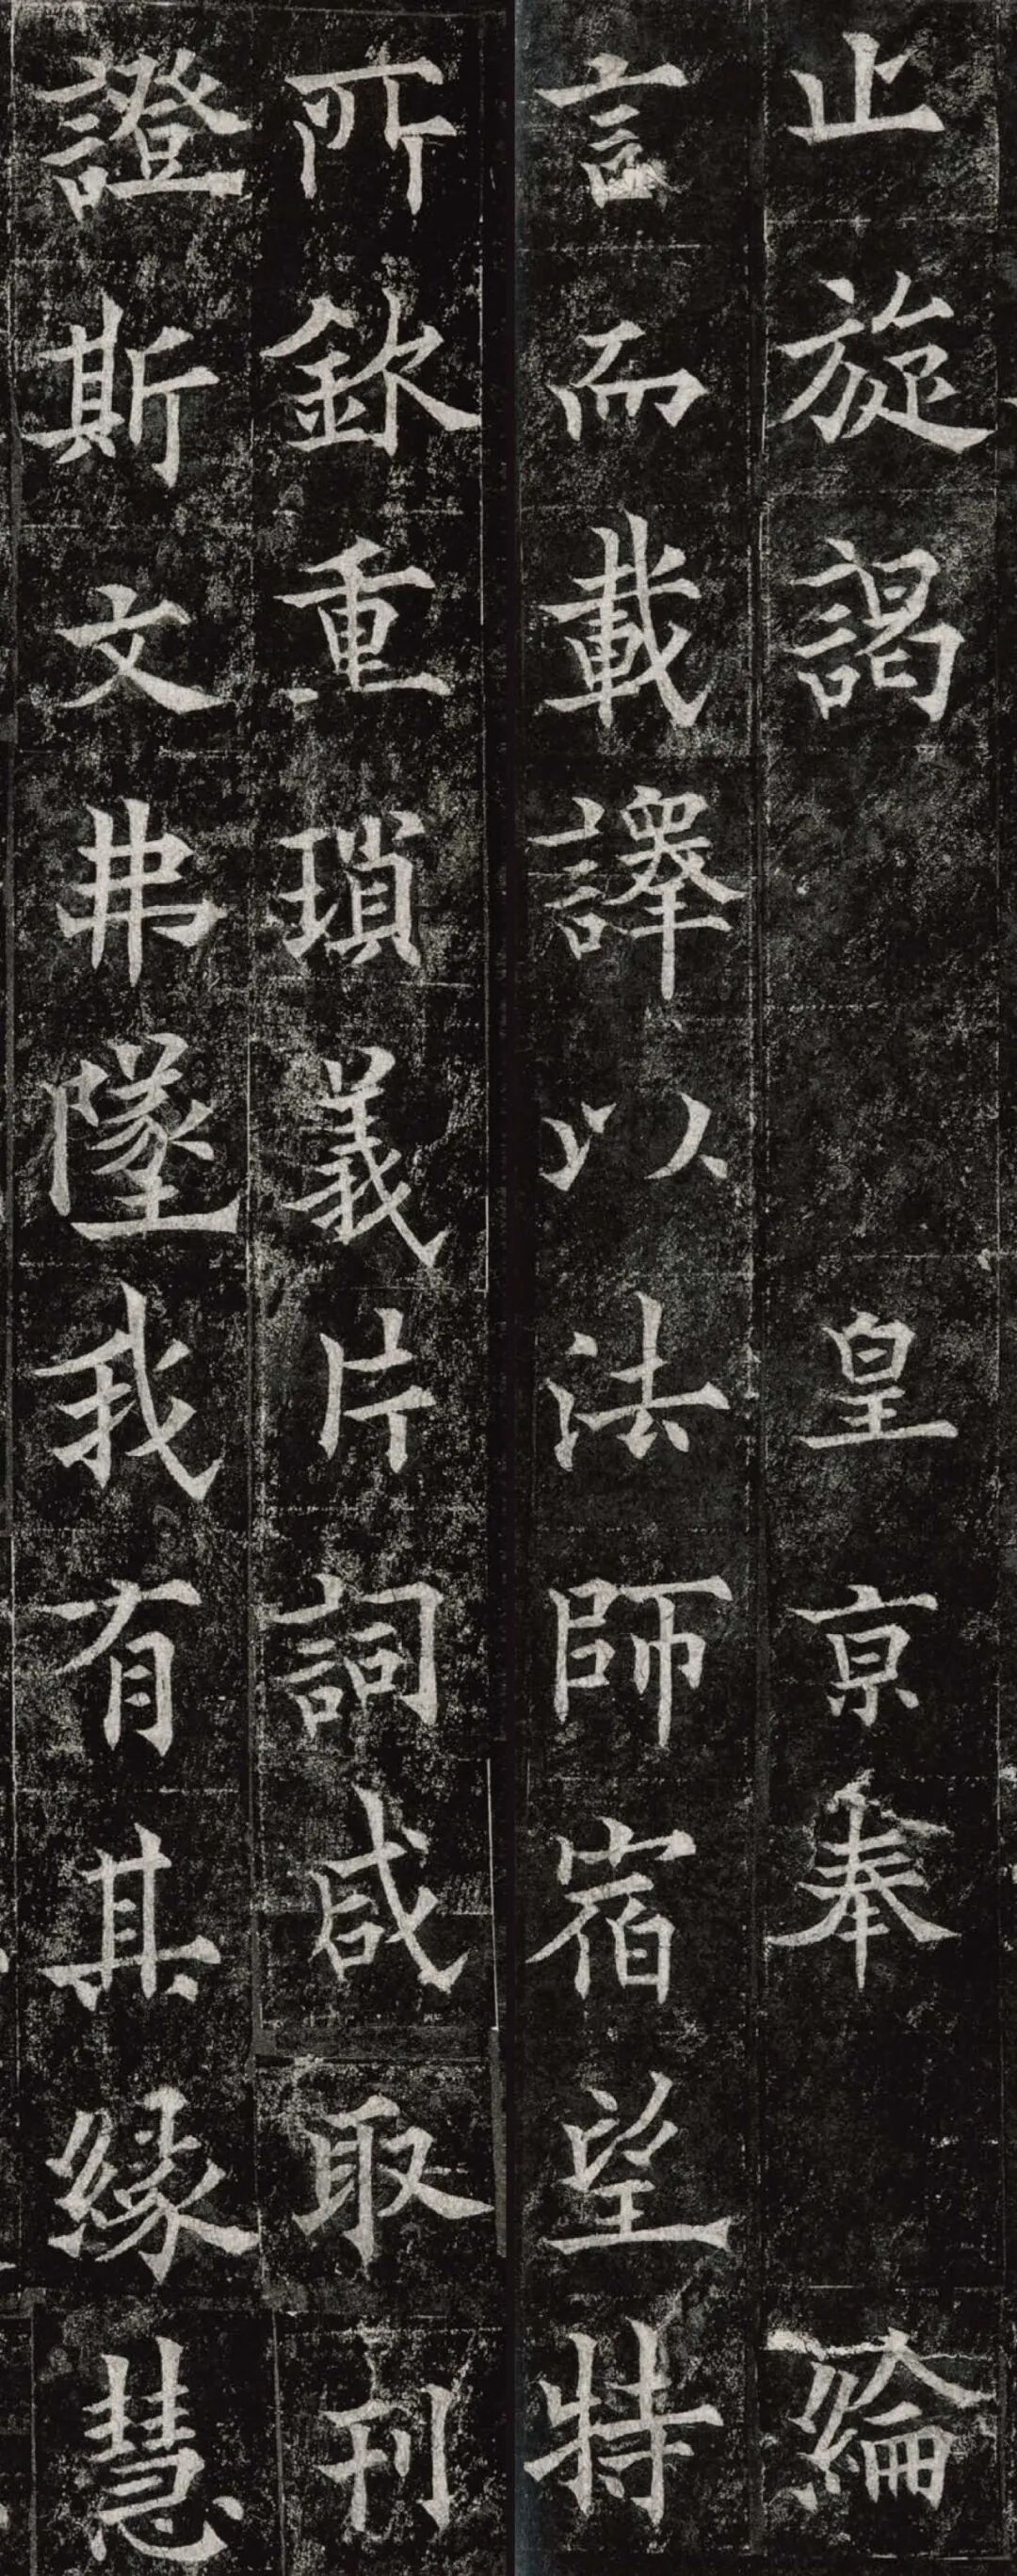 止旋謁皇京奉綸
言而載譯以法師宿望特
所欽重瑣義片詞咸取刊
證斯文弗墜我有其緣慧